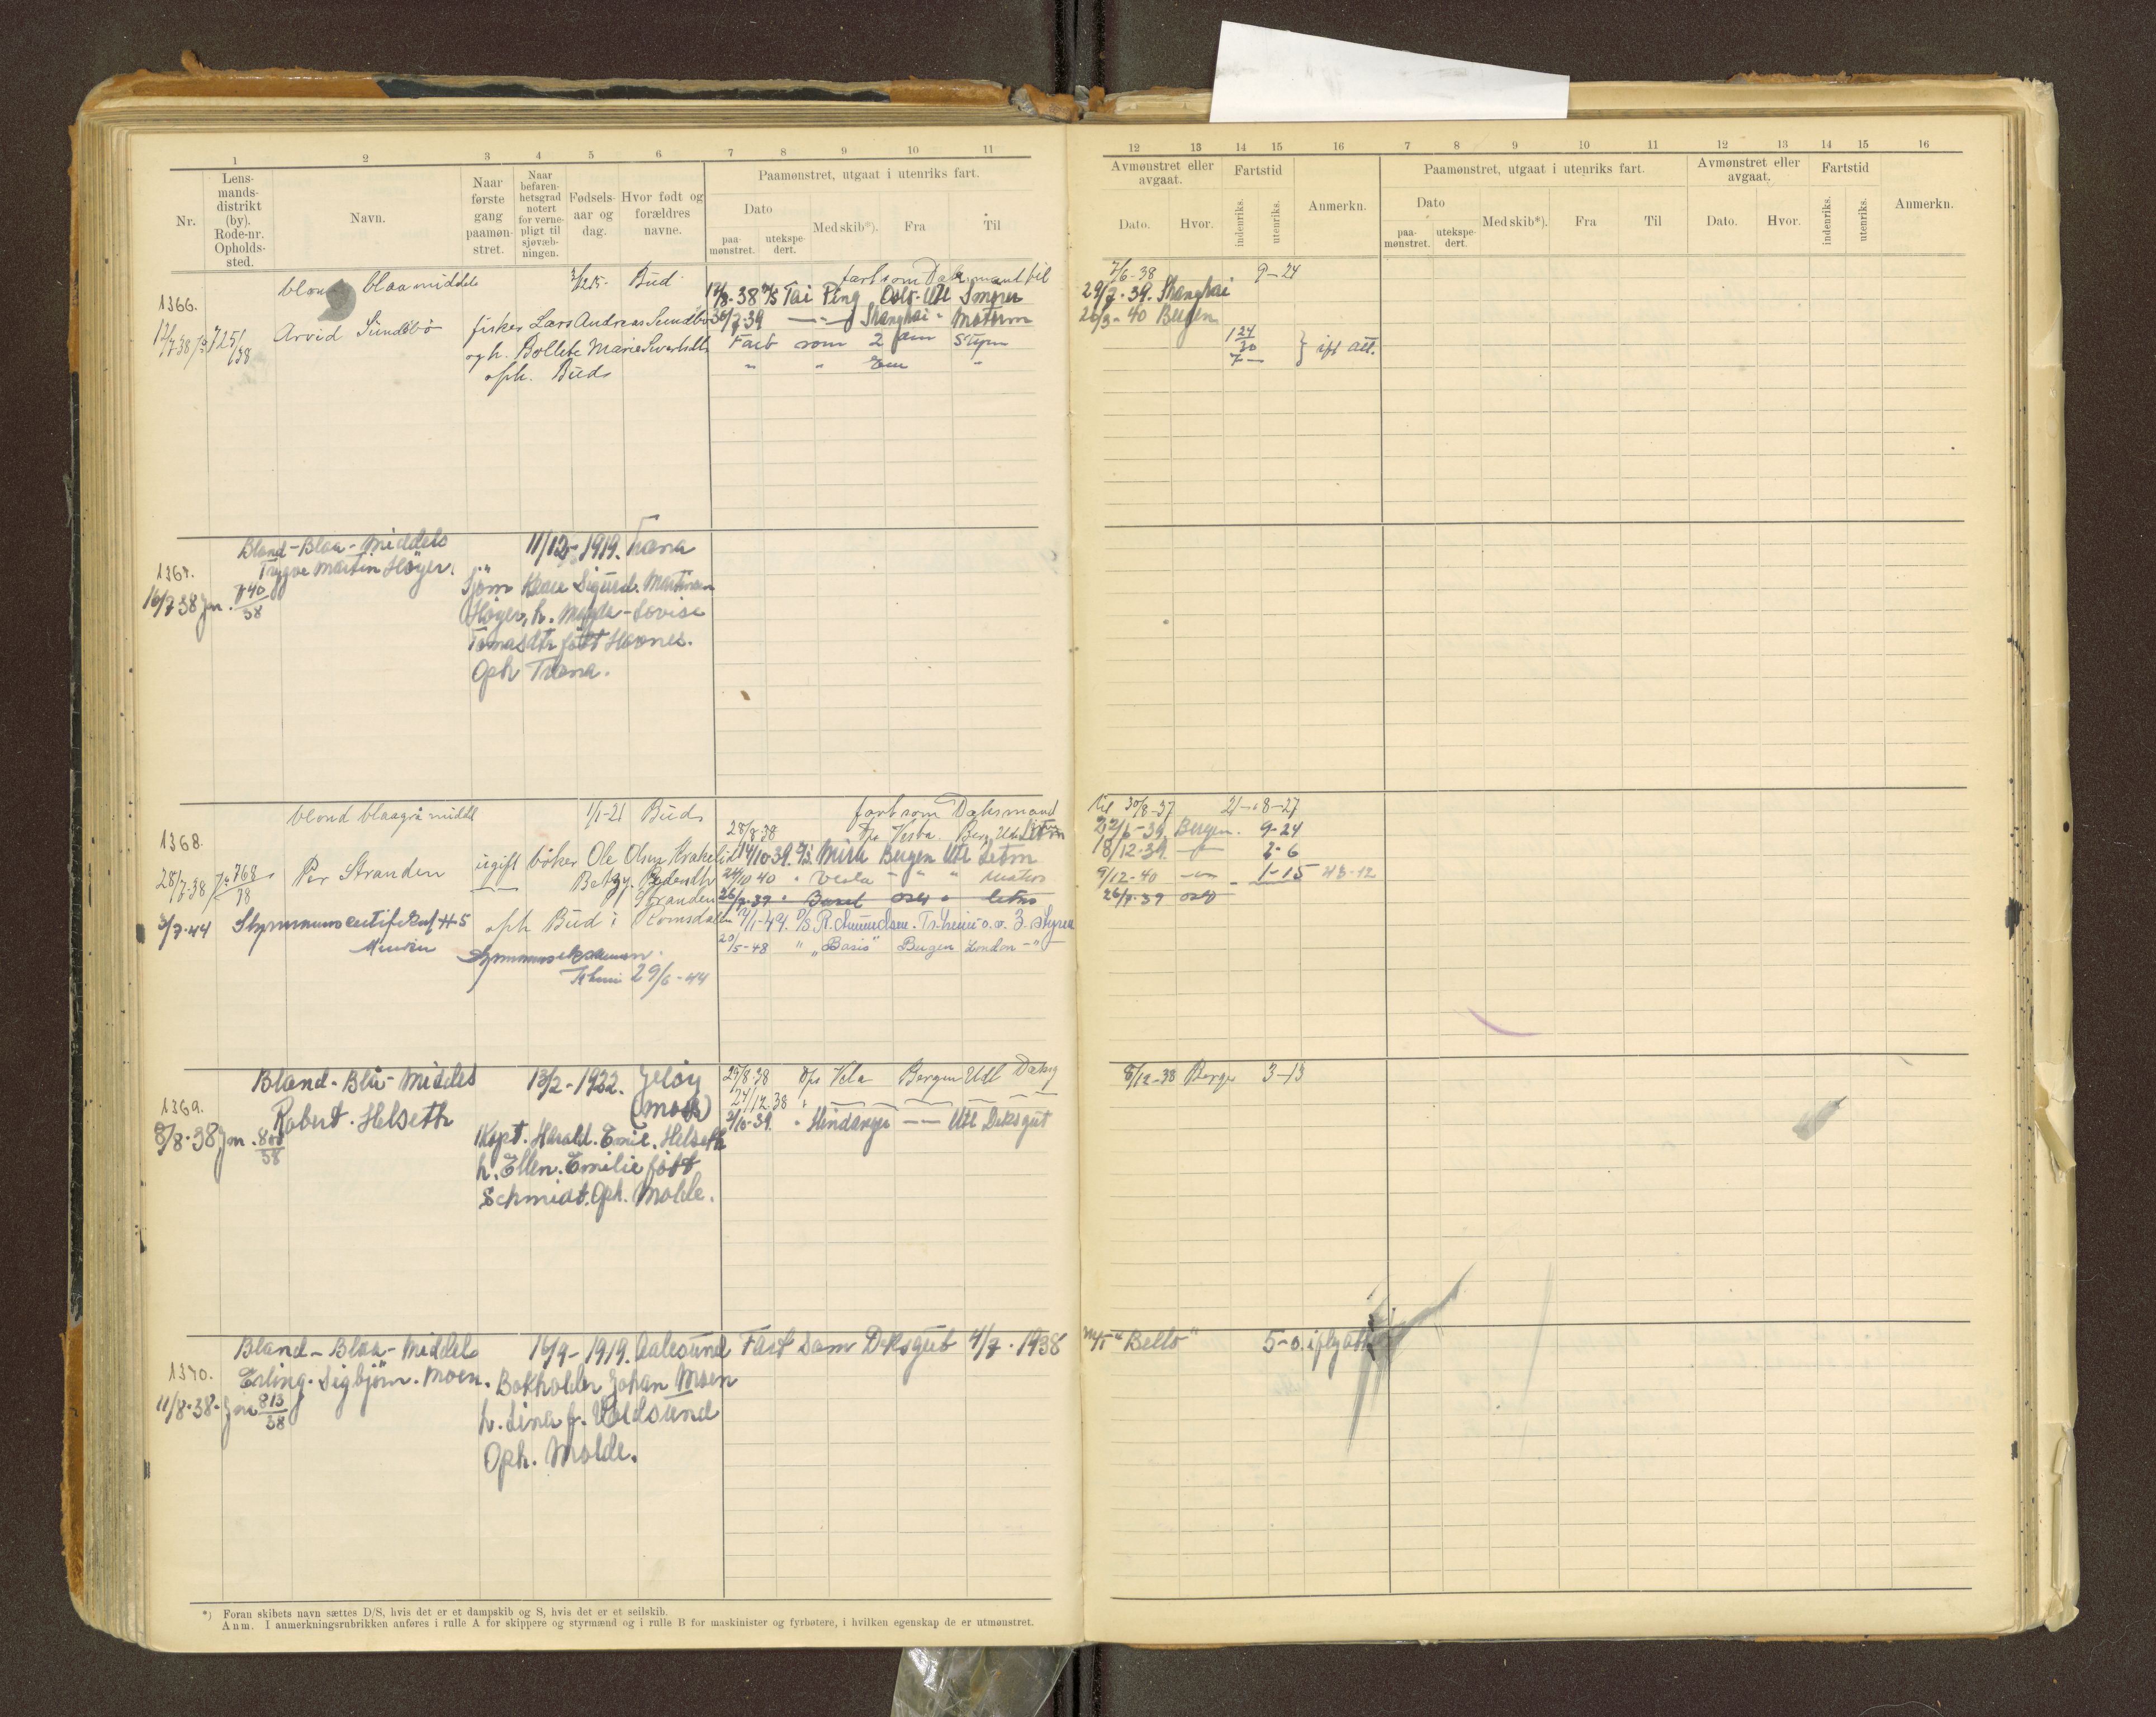 1 2 3 4 5 6 7 8 9 10 11
Nr.
Lens-
mands-
distrikt
(by).
Rode-nr.
Opholds-
sted.
Navn.
Naar
første
gang
paamøn-
stret.
Naar
befaren-
hetsgrad
notert
for verne-
pligt til
sjøvæb-
ningen.
Fødsels-
aar og
dag.
Hvor født og
forældres
navne.
Paamønstret, utgaat i utenriks fart.
Dato
paa-
mønstret.
utekspe-
dert.
Med skib*).
Fra
Til
1366.
12/7-38 725/38
blond blaa middels
Arvid Sundsbö
Bud
fisker Lars Andreas Sundbö
og h. Bollete Marie
oph. Bud
fart som Daksmand til
12/8-38 M/S Tai Ping Oslo Utl Smörer
30/7-39 — " — Shanghai " Matorm
Fart som 2 Styrm
" "
1367.
16/7 38 Jn. 740/38
Blond-Blaa-Middels
Trygve Martin Höyer.
11/12-1919. Træna
Sjöm Kaare Sigurd. Martinsen
Höyer, h. Magda-Lovise
Tomasdtr födt Havnes.
Oph Træna.
1368.
28/7-38 768/38
blond blaagrå middl
Per Stranden
3/7-44 Styrmannscertifikat H 5
1/1-21 Bud
ugift böker Ole Olsen Krakelid
Betzy Pedersdtr
f Stranden
oph Bud i Romsdalen
Styrmannseksamen.
Tr.heim 29/6-44
fart som Daksmand
28/8-38 D/s Vesla. Berg. Utl. Letm
14/10-39. D/s. Mira Bergen Utl Letm
24/10 40 " Vesla - " " Matros
26/7-39 " Basel Oslo " letm
17/1-49. D/S. R. Amundsen. Tr.heim o.v. 3. styrm
20/5-48 " "Basis" Bergen London - "
1369.
8/8-38 Jn. 800/38
Blond-Blå-Middels
Robert. Helseth
13/2-1922. Jelöy
(Moss)
Kapt. Harald. Emil. Helseth
h. Ellen. Emilie födt
Schmidt. Oph. Molde.
29/8-38 D/s Vela Bergen Utl Daksg
27/12 38 " — — — —
2/10-39. " Hindanger — — Utl Deksgut
1370.
11/8-38- Jn 813/38
Blond-Blaa-Middels
Erling. Sigbjörn. Moen.
16/9-1919. Aalesund
Bokholder Johan Moen
h. Lina f. Valdsund
Oph. Molde.
Fart som Deksgut 4/7. 1938
*) Foran skibets navn sættes D/S, hvis det er et dampskib og S, hvis det er et seilskib.
Anm. I anmerkningsrubrikken anføres i rulle A for skippere og styrmænd og i rulle B for maskinister og fyrbøtere, i hvilken egenskap de er utmønstret.
12 13 14 15 16 7 8 9 10 11 12 13 14 15 16
Avmønstret eller
avgaat.
Dato.
Hvor.
Fartstid
indenriks.
utenriks.
Anmerkn.
Paamønstret, utgaat i utenriks fart.
Dato
paa-
mønstret.
utekspe-
dert.
Med skib*).
Fra
Til
Avmønstret eller
avgaat.
Dato.
Hvor.
Fartstid
indenriks.
utenriks.
Anmerkn.
7/6-38 9-24
29/7-39. Shanghai
26/3-40 Bergen
1 24/30
7 —
} ift att.
til 30/8-37 21- 8-27
22/6-39 Bergen. 9-24
18/12-39. — " — 2-6
9/12-40 — " — 1-15 43-12
26/7-39 oslo
8/12-38 Bergen 3-13
M/S "Bello" 5-0. iflg att